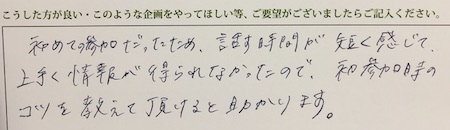 こうした方が良い・このような企画をやってほしい等、ご要望がございましたらご記入ください。
初めての参加だったため、話す時間が短く感じて、
上手く情報が得られなかったので、初参加時の
コツを教えて頂けると助かります。